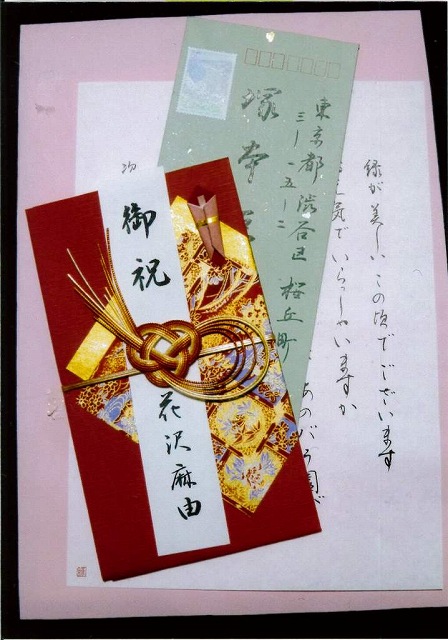 東京都渋谷区桜丘町
三ー一五ー二
塚本
御祝
花沢麻由
緑が美しいこの頃でございます
元気でいらっしゃいますか